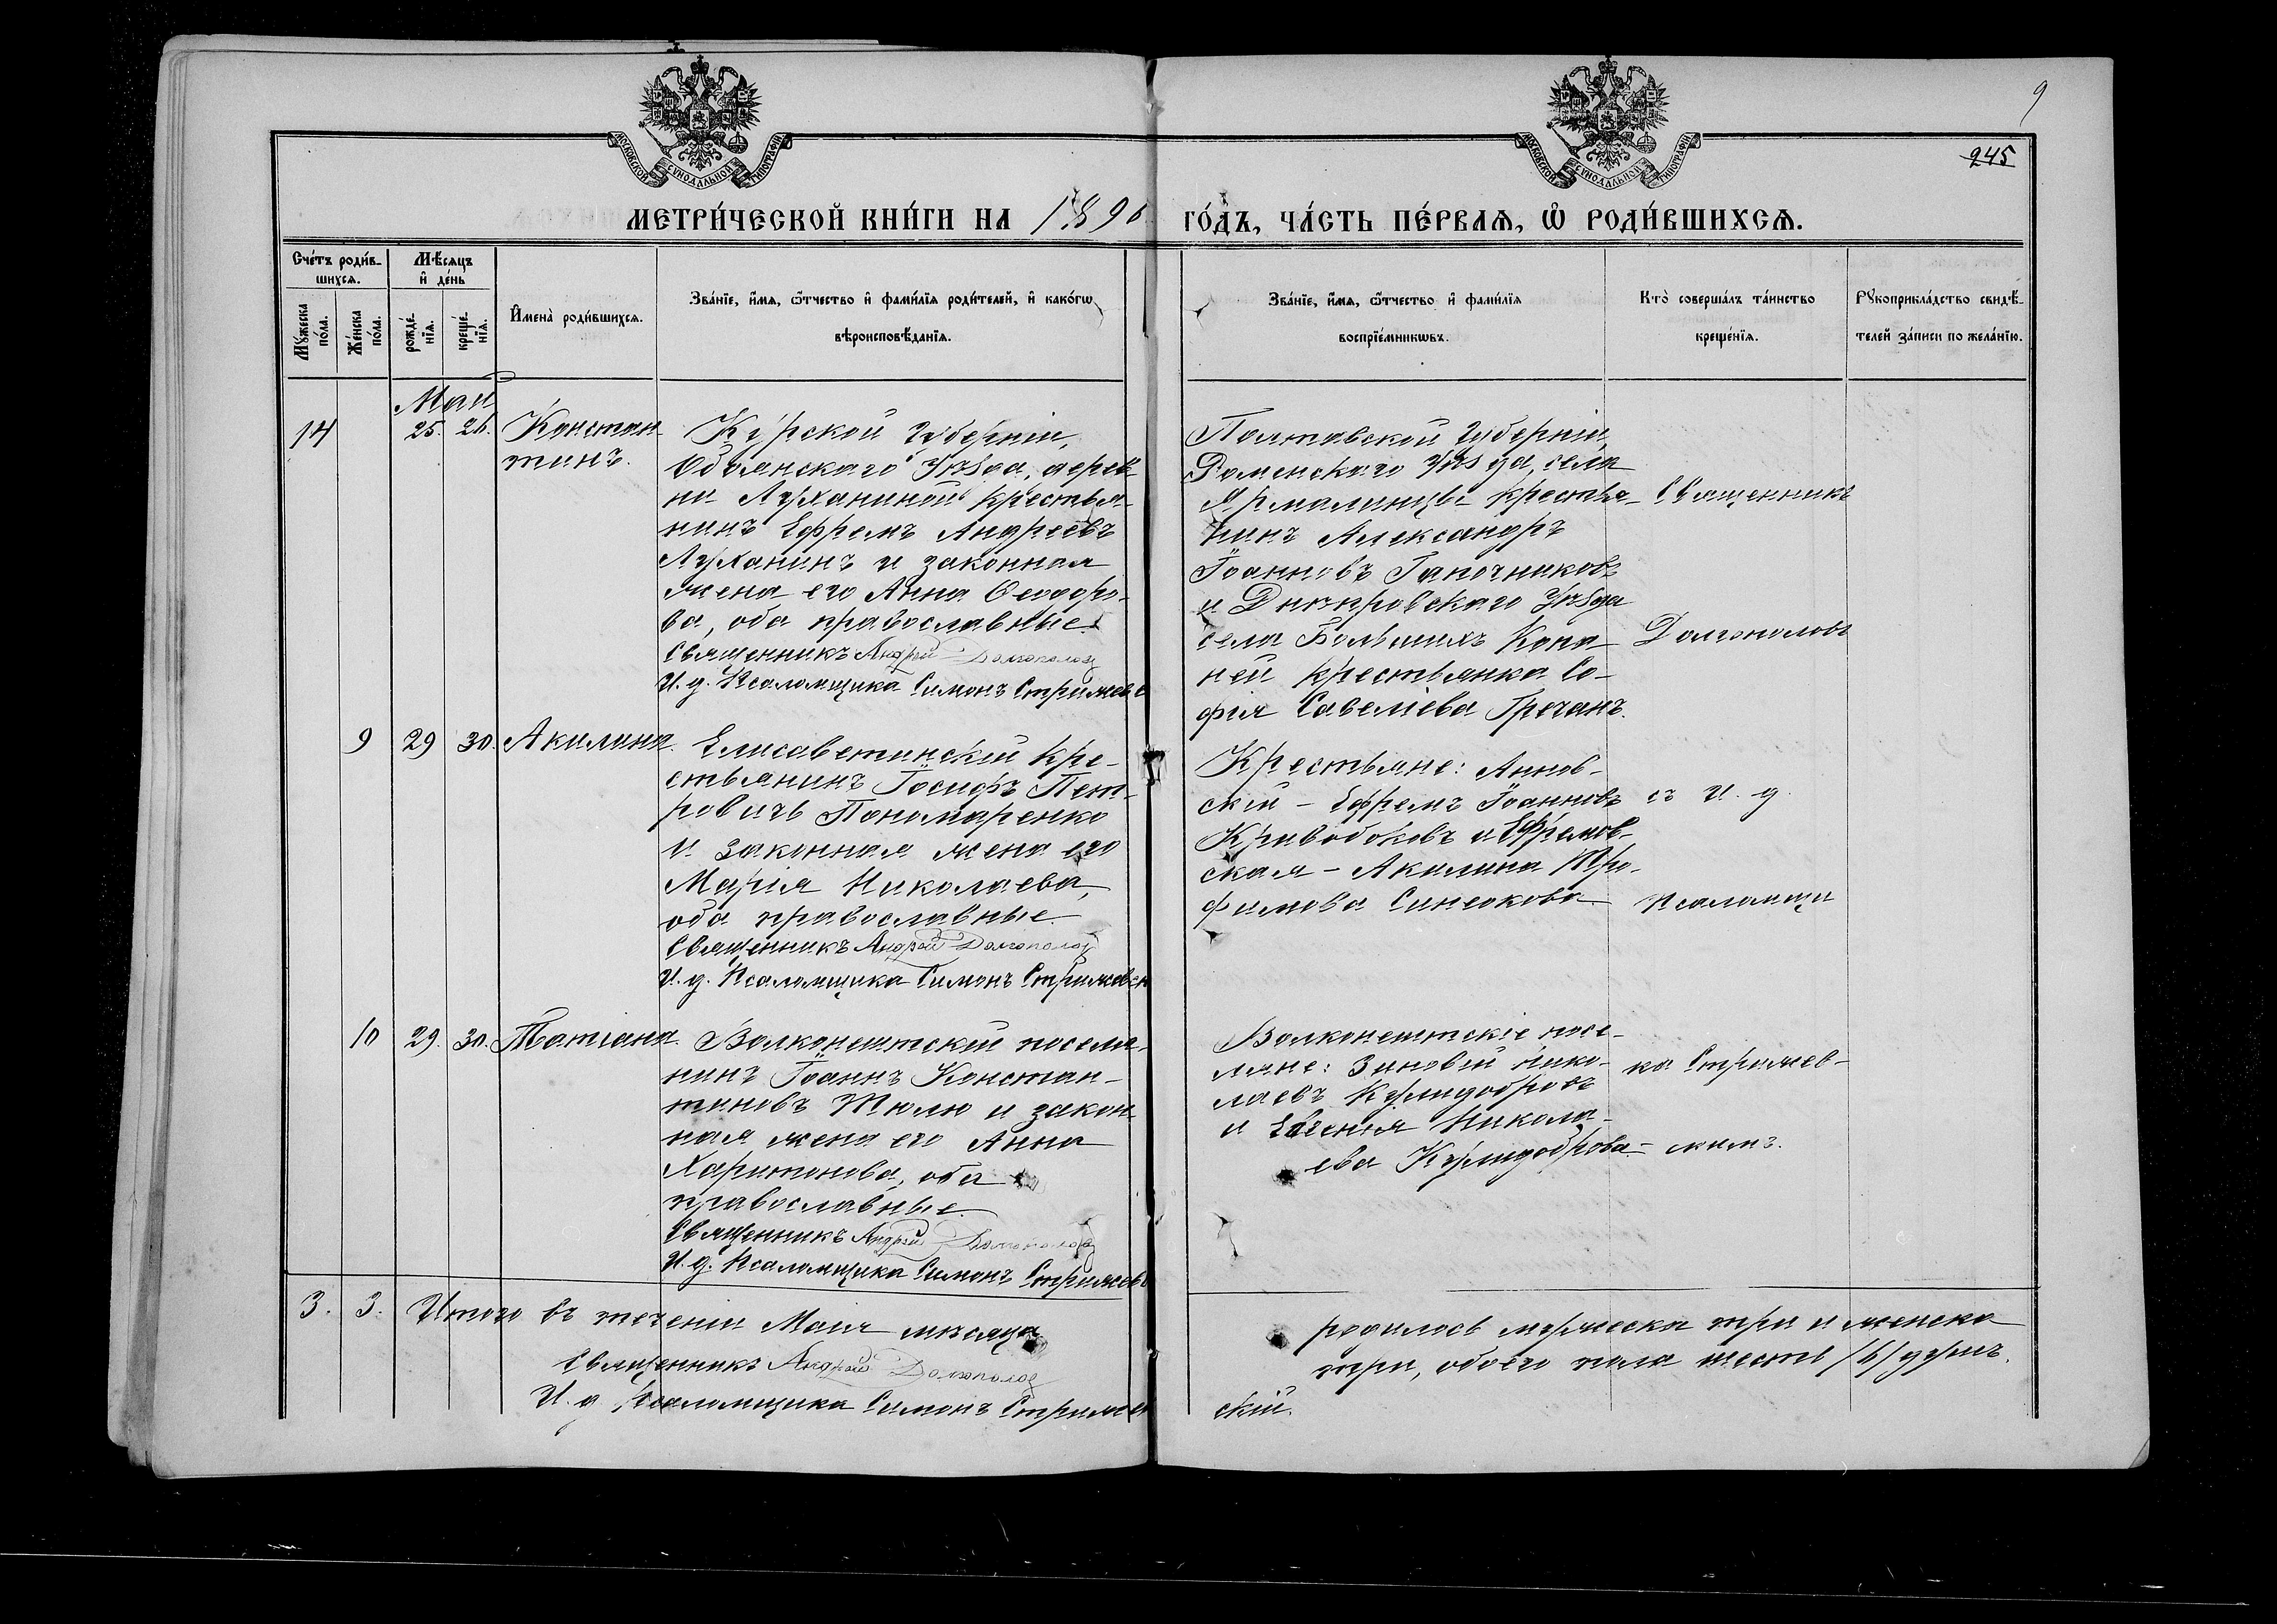 9
245
МОСКОВСКОЙ СУНОДАЛЬНОЙ ТИПОГРАФІИ
МОСКОВСКОЙ СУНОДАЛЬНОЙ ТИПОГРАФІИ
МЕТРИ́ЧЕСКОЙ КНИ́ГИ НА 1890 ГО́ДЪ, ЧА́СТЬ ПЕ́РВАѦ, Ѡ҆ РОДИ́ВШИХСѦ.
Сче́тъ роди́в-
шихсѧ.
Мꙋ́жеска
по́ла.
Же́нска
по́ла.
Мѣ́сѧцъ
и҆ де́нь
рожде́-
нїѧ.
креще́-
нїѧ.
И҆мена̀ роди́вшихсѧ.
Зва́нїе, и҆́мѧ, ѻ҆́тчество и҆ фами́лїѧ роди́телей, и҆ како́гѡ
вѣроисповѣ́данїѧ.
Зва́нїе, и҆́мѧ, ѻ҆́тчество и҆ фами́лїѧ
воспрїе́мникѡвъ.
Кто̀ соверша́лъ та́инство
креще́нїѧ.
Рꙋкоприкла́дство свидѣ́-
телей за́писи по жела́нїю.
Май
14 25. 26. Констан-
тинъ.
Курской Губерніи,
Обоянскаго Уѣзда, дерев-
ни Луханиной крестья-
нинъ Ефремъ Андреевъ
Луханинъ и законная
жена его Анна Ѳеодоро-
ва, оба православные.
Священникъ Андрей Долгополов
И. д. Псаломщика Симонъ Стрижевс
Полтавской Губерніи,
Роменскаго Уѣзда, села
Ярмалинцы крестья-
нинъ Александръ
Іоанновъ Гапочниковъ
и Днѣпровскаго Уѣзда
села Большихъ Копа-
ней крестьянка Со-
фія Савеліева Гречанъ.
Священникъ
Долгополовъ
9 29 30. Акилина.
Елисаветинскій кре-
стьянинъ Іосифъ Пет-
ровичъ Пономаренко
и законная жена его
Марія Николаева,
оба православные.
Священникъ Андрей Долгополов
И. д. Псаломщика Симонъ Стрижевск
Крестьяне: Аннов-
скій - Ефремъ Іоанновъ
Кривобоковъ и Ефремов-
ская - Акилина Тро-
фимова Синеокова.
съ И. д.
Псаломщи
10 29. 30. Татіана.
Волконештскій поселя-
нинъ Іоаннъ Констан-
тиновъ Тюлю и закон-
ная жена его Анна
Харитонова, оба
православные.
Священникъ Андрей Долгополов
И. д. Псаломщика Симонъ Стрижевс
Волконештскіе посе-
ляне: Зиновій Нико-
лаевъ
и Евгенія Никола-
ева
ка Стрижев-
скимъ.
3. 3. Итого въ теченіи Маія мѣсяца
родилось мужеска три и женска
три, обоего пола шесть /6/ душъ.
Священникъ Андрей Долгополов
И. д. Псаломщика Симонъ Стрижев
скій.